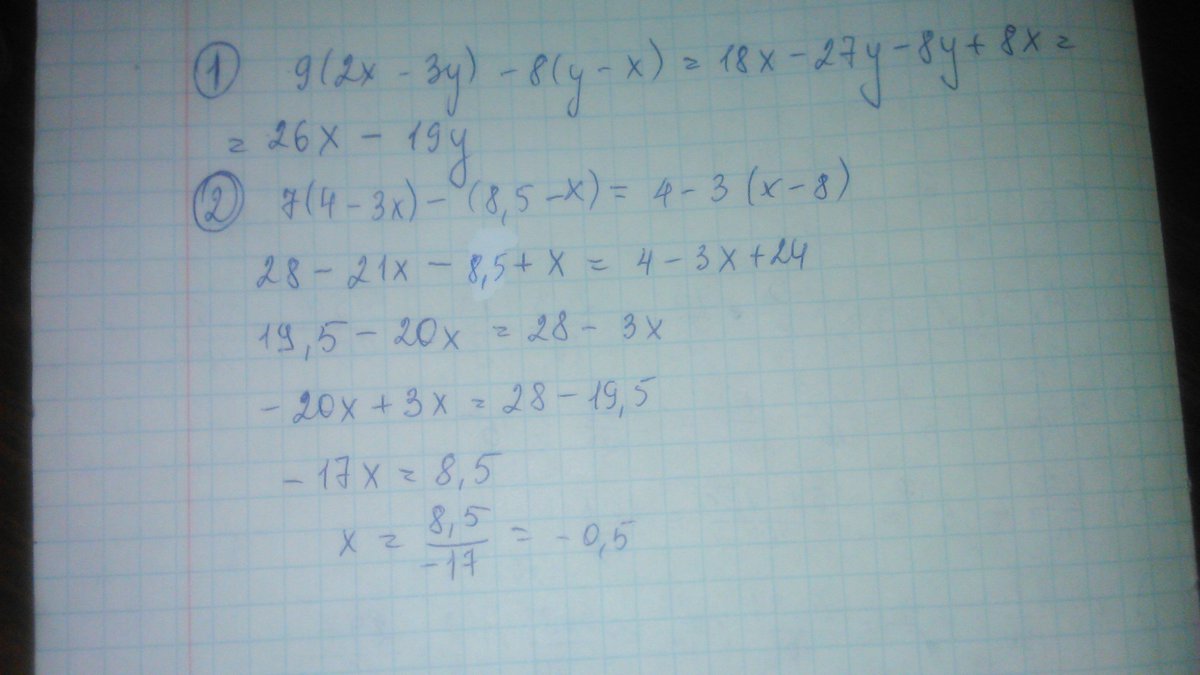 ① 9(2x - 3y) - 8(y - x) = 18x - 27y - 8y + 8x =
= 26x - 19y
② 7(4 - 3x) - (8,5 - x) = 4 - 3(x - 8)
28 - 21x - 8,5 + x = 4 - 3x + 24
19,5 - 20x = 28 - 3x
- 20x + 3x = 28 - 19,5
- 17x = 8,5
x = 8,5/-17 = - 0,5